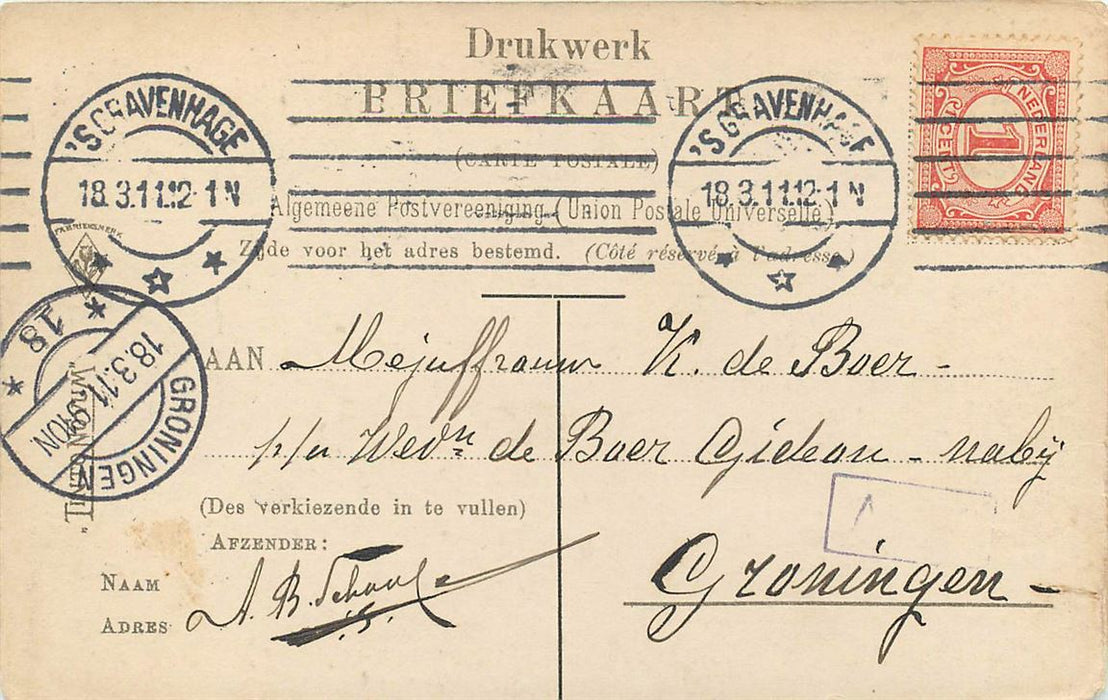 Drukwerk
BRIEFKAART
(CARTE POSTALE)
Algemeene Postvereeniging (Union Postale Universelle)
Zijde voor het adres bestemd. (Côté réservé à l'adresse)
'S GRAVENHAGE
18.3.11.12-1N
'S GRAVENHAGE
18.3.11.12-1N
NEDERLAND
1
1 CENT
FABRIEKSMERK
GRONINGEN
18.3.11
18
AAN Mejuffrouw K. de Boer -
p/a Wedn de Boer Gideon - nabij
Groningen -
(Des verkiezende in te vullen)
AFZENDER:
NAAM
ADRES
A. B.